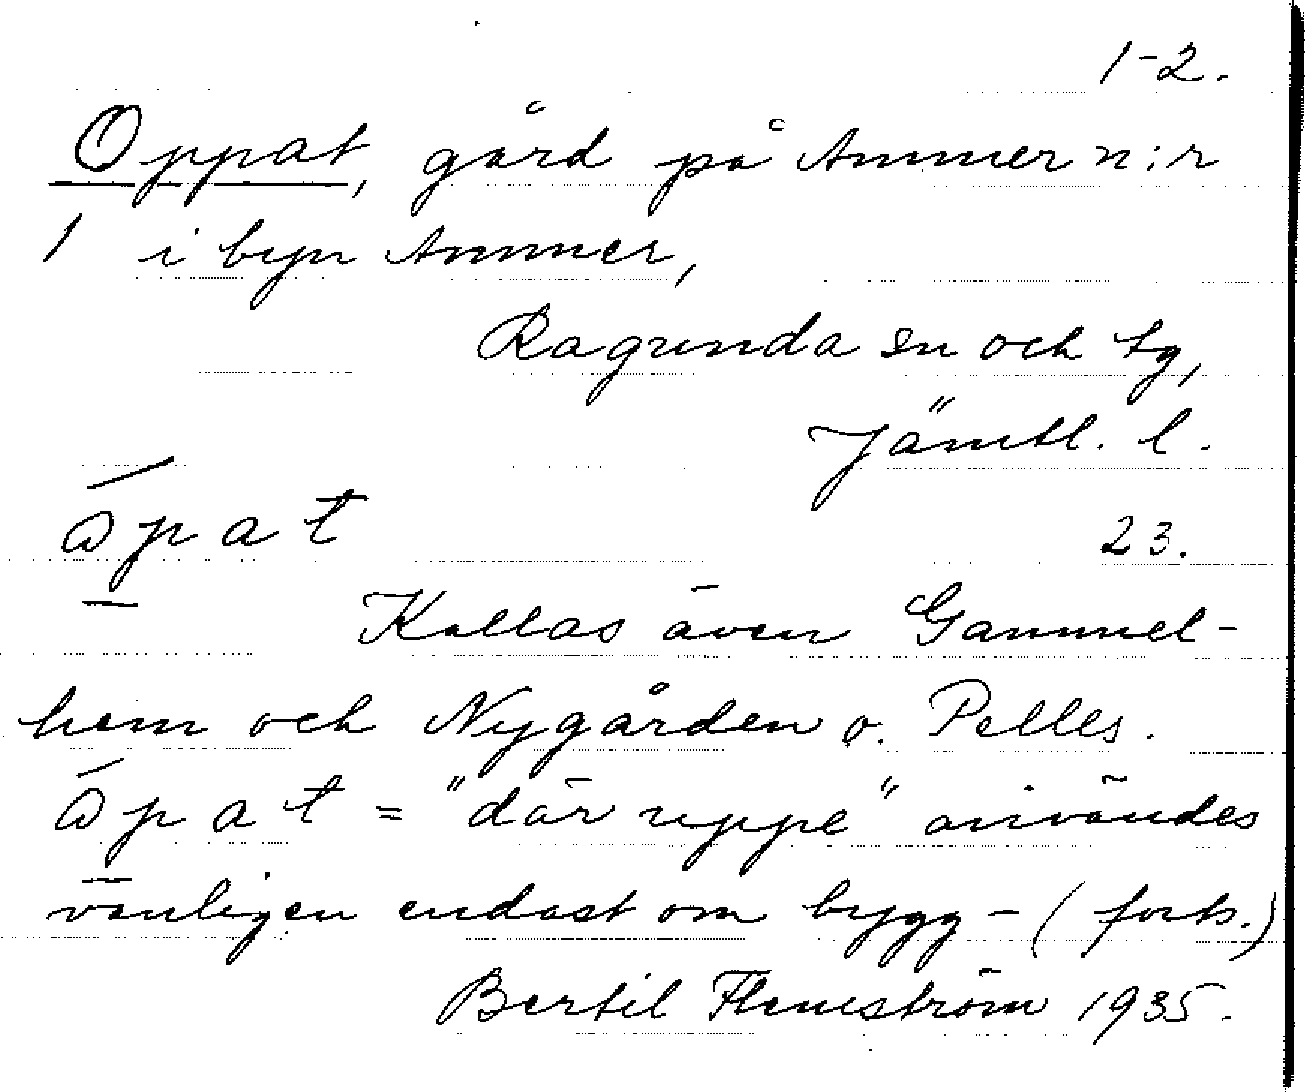 1-2.
Oppat, gård på Ammer n:r
1 i byn Ammer,
Ragunda sn och tg,
Jämtl. l.
åpat
23.
Kallas även Gammel-
hem och Nygården o. Pelles.
åpat = "där uppe" användes
vanligen endast om bygg- (forts.)
Bertil Flemström 1935.